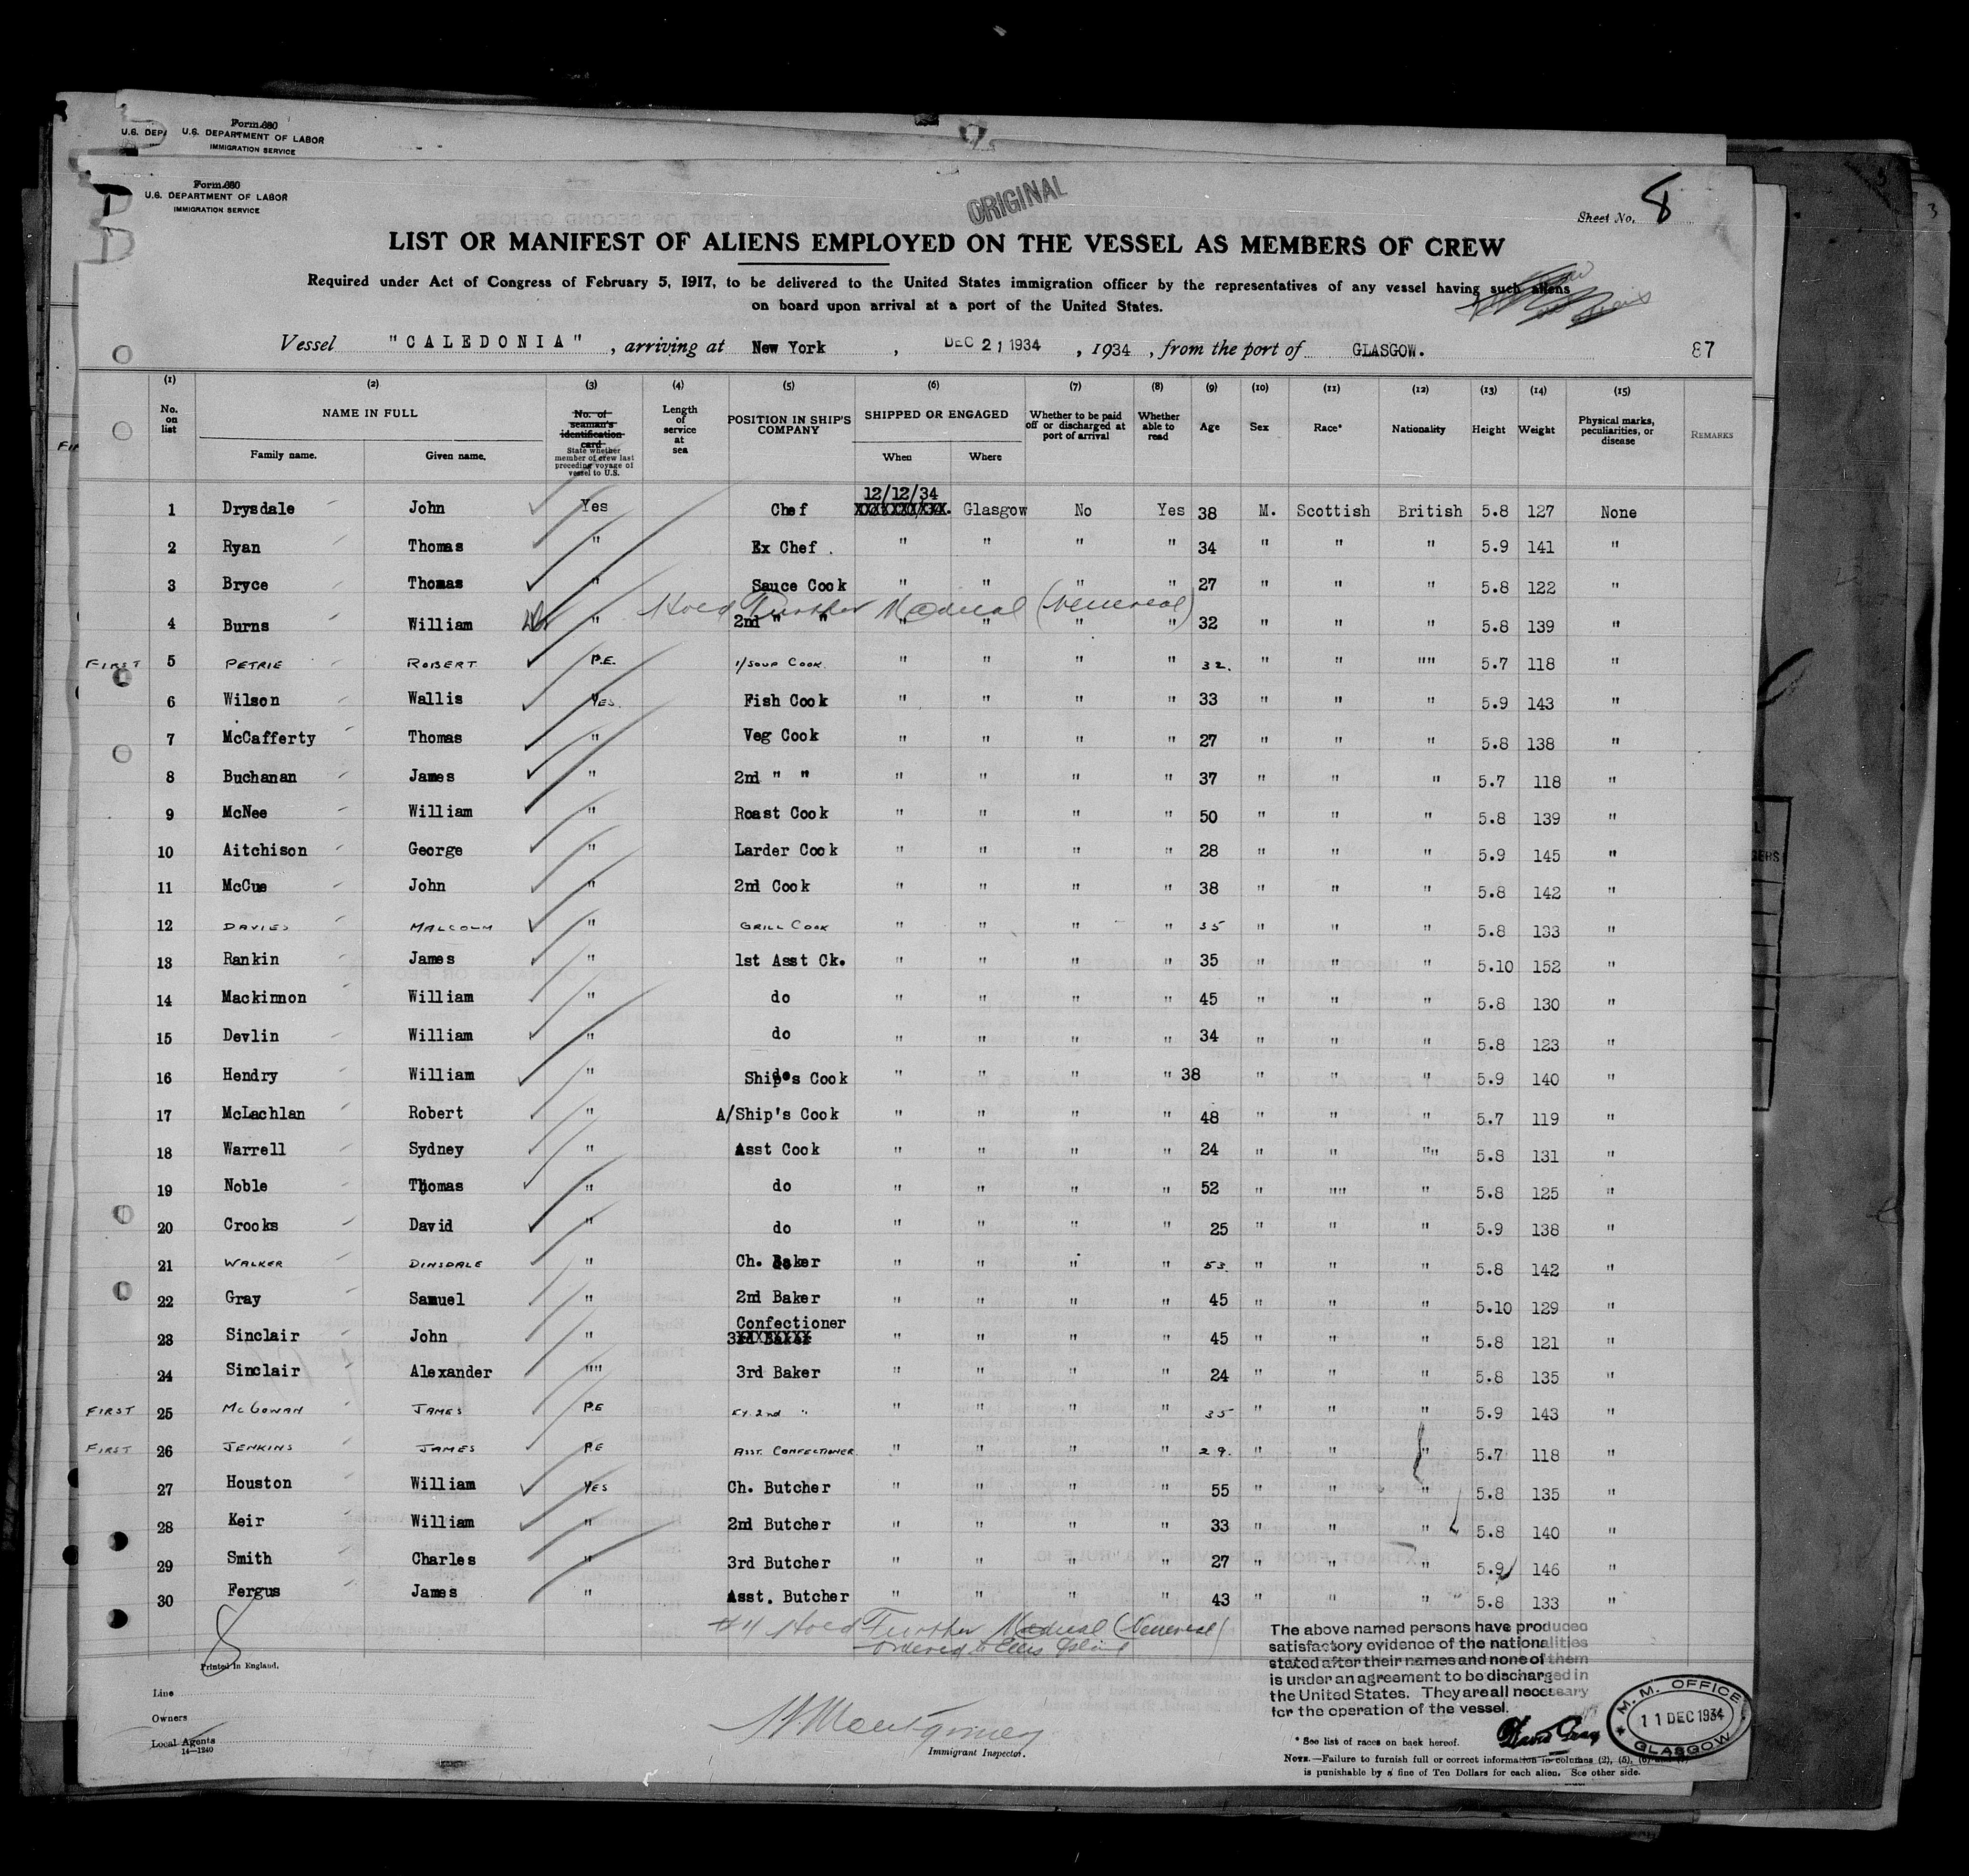 Form 680
U.S. DEPARTMENT OF LABOR
IMMIGRATION SERVICE
Form 680
U.S. DEPARTMENT OF LABOR
IMMIGRATION SERVICE
ORIGINAL
Sheet No. 8
LIST OR MANIFEST OF ALIENS EMPLOYED ON THE VESSEL AS MEMBERS OF CREW
Required under Act of Congress of February 5, 1917, to be delivered to the United States immigration officer by the representatives of any vessel having such aliens
on board upon arrival at a port of the United States.
Vessel "CALEDONIA", arriving at New York, DEC 21 1934, 1934, from the port of GLASGOW. 87
(1) (2) (3) (4) (5) (6) (7) (8) (9) (10) (11) (12) (13) (14) (15)
No. on list NAME IN FULL Family name. Given name. No. of seaman's identification card State whether member of crew last preceding voyage of vessel to U.S. Length of service at sea POSITION IN SHIP'S COMPANY SHIPPED OR ENGAGED When Where Whether to be paid off or discharged at port of arrival Whether able to read Age Sex Race* Nationality Height Weight Physical marks, peculiarities, or disease REMARKS
12/12/34
1 Drysdale John Yes Chef Glasgow No Yes 38 M. Scottish British 5.8 127 None
2 Ryan Thomas " Ex Chef . " " " " 34 " " " 5.9 141 "
3 Bryce Thomas " Sauce Cook " " " " 27 " " " 5.8 122 "
Hold Further Medical (Venereal)
4 Burns William " 2nd " " " " " " 32 " " " 5.8 139 "
FIRST 5 PETRIE ROBERT P.E. 1/SOUP COOK. " " " " 32. " " "" 5.7 118 "
6 Wilson Wallis YES. Fish Cook " " " " 33 " " " 5.9 143 "
7 McCafferty Thomas " Veg Cook " " " " 27 " " " 5.8 138 "
8 Buchanan James " 2nd " " " " " " 37 " " " 5.7 118 "
9 McNee William " Roast Cook " " " " 50 " " " 5.8 139 "
10 Aitchison George " Larder Cook " " " " 28 " " " 5.9 145 "
11 McCue John " 2nd Cook " " " " 38 " " " 5.8 142 "
12 DAVIES MALCOLM " GRILL COOK " " " " 35 " " " 5.8 133 "
13 Rankin James " 1st Asst Ck. " " " " 35 " " " 5.10 152 "
14 Mackinnon William " do " " " " 45 " " " 5.8 130 "
15 Devlin William " do " " " " 34 " " " 5.8 123 "
16 Hendry William " Ship's Cook " " " " 38 " " " 5.9 140 "
17 McLachlan Robert " A/Ship's Cook " " " " 48 " " " 5.7 119 "
18 Warrell Sydney " Asst Cook " " " " 24 " " "" 5.8 131 "
19 Noble Thomas " do " " " " 52 " "" " 5.8 125 "
20 Crooks David " do " " " " 25 " " " 5.9 138 "
21 WALKER DINSDALE " Ch. Baker " " " " 53. " " " 5.8 142 "
22 Gray Samuel " 2nd Baker " " " " 45 " " " 5.10 129 "
Confectioner
23 Sinclair John " 3rd Baker " " " " 45 " " " 5.8 121 "
24 Sinclair Alexander "" 3rd Baker " " " " 24 " " " 5.8 135 "
FIRST 25 McGOWAN JAMES P.E 2nd " " " " " 35 " " " 5.9 143 "
FIRST 26 JENKINS JAMES P.E ASST. CONFECTIONER. " " " " 29. " " " 5.7 118 "
27 Houston William YES Ch. Butcher " " " " 55 " " " 5.8 135 "
28 Keir William " 2nd Butcher " " " " 33 " " " 5.8 140 "
29 Smith Charles " 3rd Butcher " " " " 27 " " " 5.9 146 "
30 Fergus James " Asst. Butcher " " " " 43 " " " 5.8 133 "
#4 Hold Further Medical (Venereal)
Ordered to Ellis Island
The above named persons have produced
satisfactory evidence of the nationalities
stated after their names and none of them
is under an agreement to be discharged in
the United States. They are all necessary
for the operation of the vessel.
Printed in England.
Line
Owners
Local Agents
14-1240
Montgomery
Immigrant Inspector.
David Gray
M. M. OFFICE
11 DEC 1934
GLASGOW
* See list of races on back hereof.
NOTE.—Failure to furnish full or correct information in columns (2), (5), (6)
is punishable by a fine of Ten Dollars for each alien. See other side.